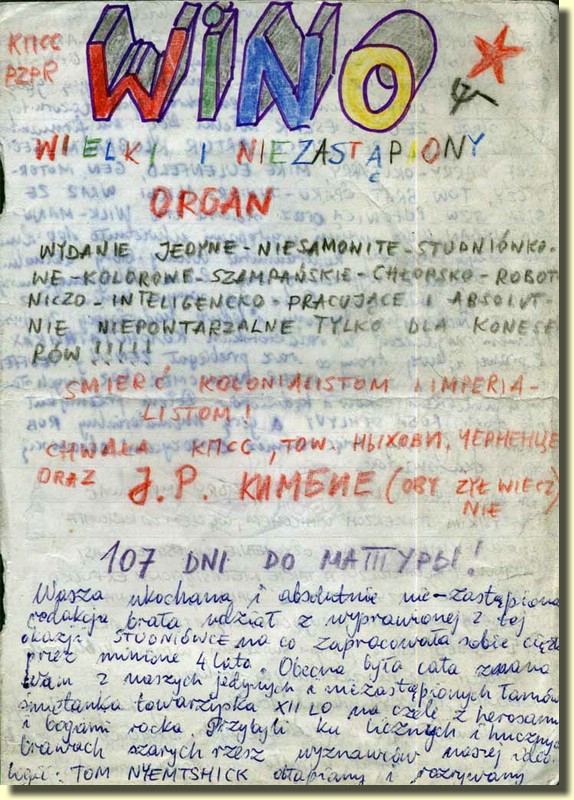 КПСС
PZPR
WiNO
WIELKI I NIEZASTĄPIONY
ORGAN
WYDANIE JEDYNE-NIESAMOWITE-STUDNIÓWKO-
WE-KOLOROWE-SZAMPAŃSKIE-CHŁOPSKO-ROBOT
NICZO-INTELIGENCKO-PRACUJĄCE I ABSOLUT-
NIE NIEPOWTARZALNE TYLKO DLA KONESE
RÓW!!!!!
ŚMIERĆ KOLONIALISTOM I IMPERIA-
LISTOM!
CHWAŁA КПСС, TOW. НЫХОВИ, ЧЕРНЕНЦЕ
ORAZ J.P. КИМБИЕ (OBY ŻYŁ WIECZ
NIE)
107 DNI DO МАТТУРЫ!
Wasza ukochana i absolutnie nie-zastąpiona
redakcja brała udział z wyprawionej z tej
okazji STUDNIÓWCE na co zapracowała sobie ciężko
przez minione 4 lata. Obecna była cała znana
Wam z naszych jedynych i niezastąpionych łamów
śmietanka towarzyska XII LO na czele z herosami
i bogami rocka. Przybyli ku licznych i hucznych
brawach szarych rzesz wyznawców naszej ideo
logii: TOM NYEMTSHICK otapiany i rozrywany